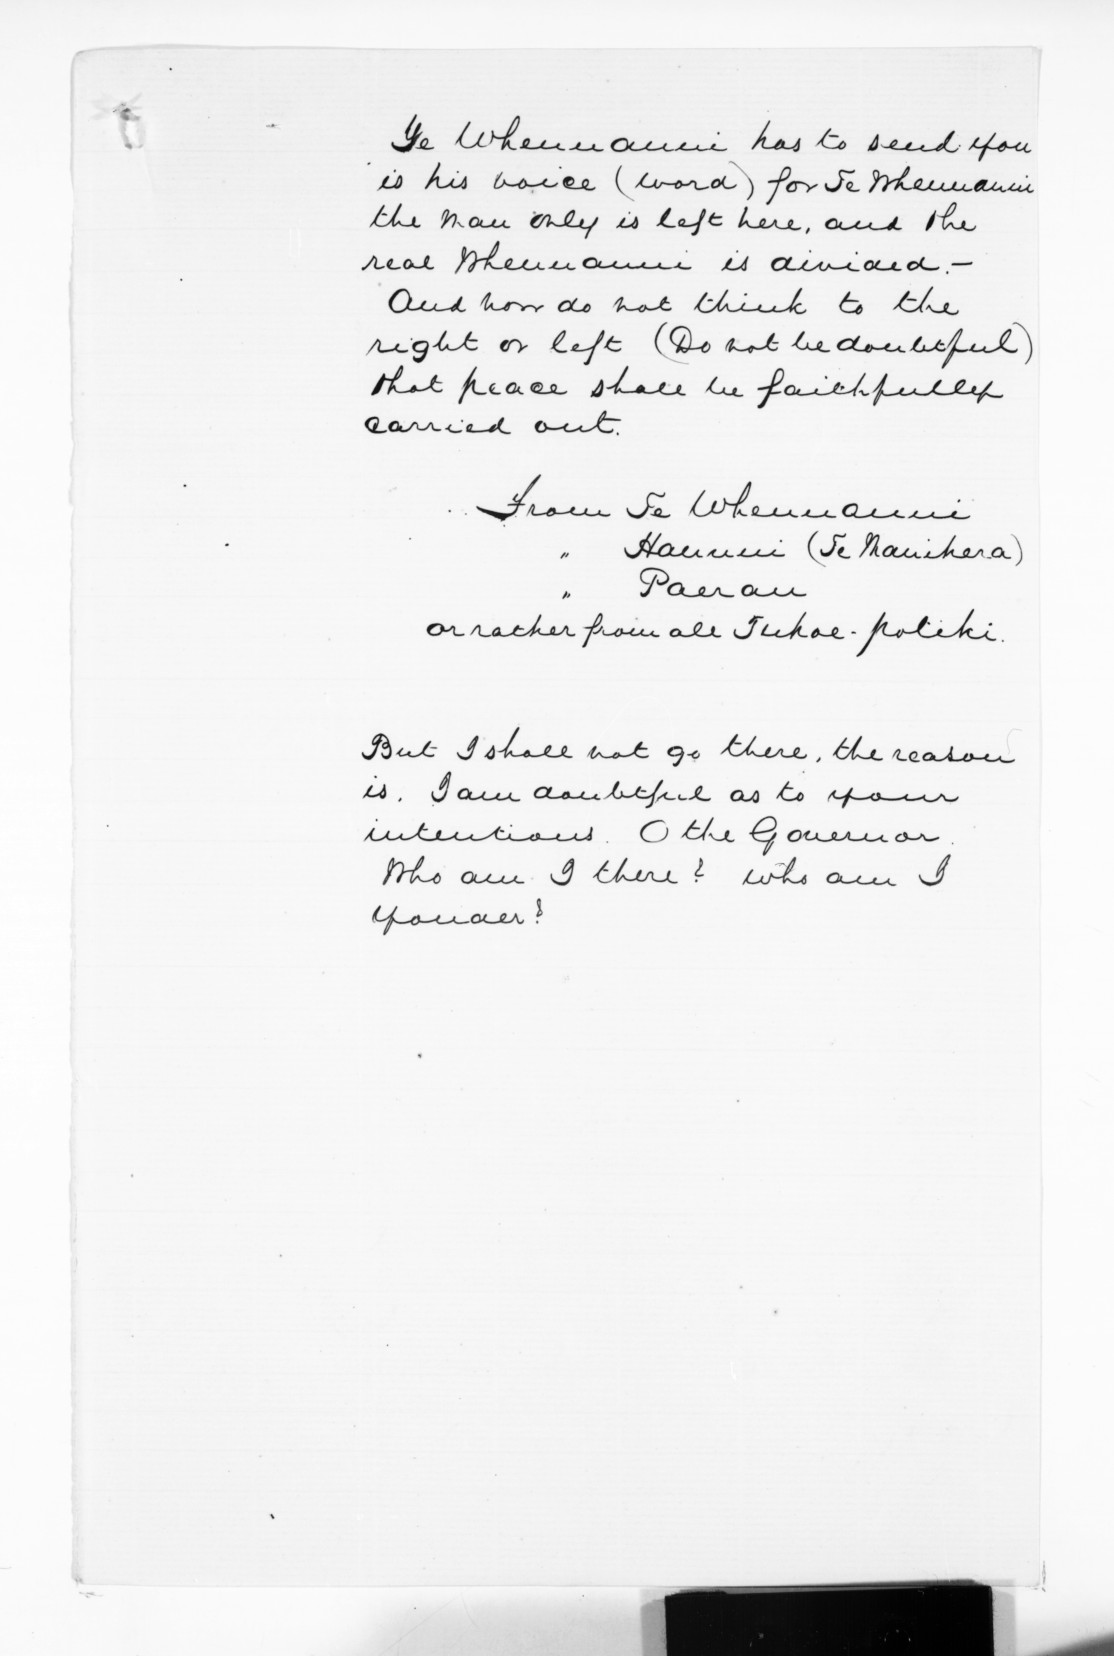 Te Whenuanui has to send you
is his voice (word) for Te Whenuanui
the man only is left here, and the
real Whenuanui is divided.—
And now do not think to the
right or left (Do not be doubtful)
that peace shall be faithfully
carried out.
From Te Whenuanui
" Haunui (Te Manihera)
" Paerau
or rather from all Tuhoe-potiki.
But I shall not go there, the reason
is, I am doubtful as to your
intentions. O the Governor.
Who am I there? who am I
yonder?